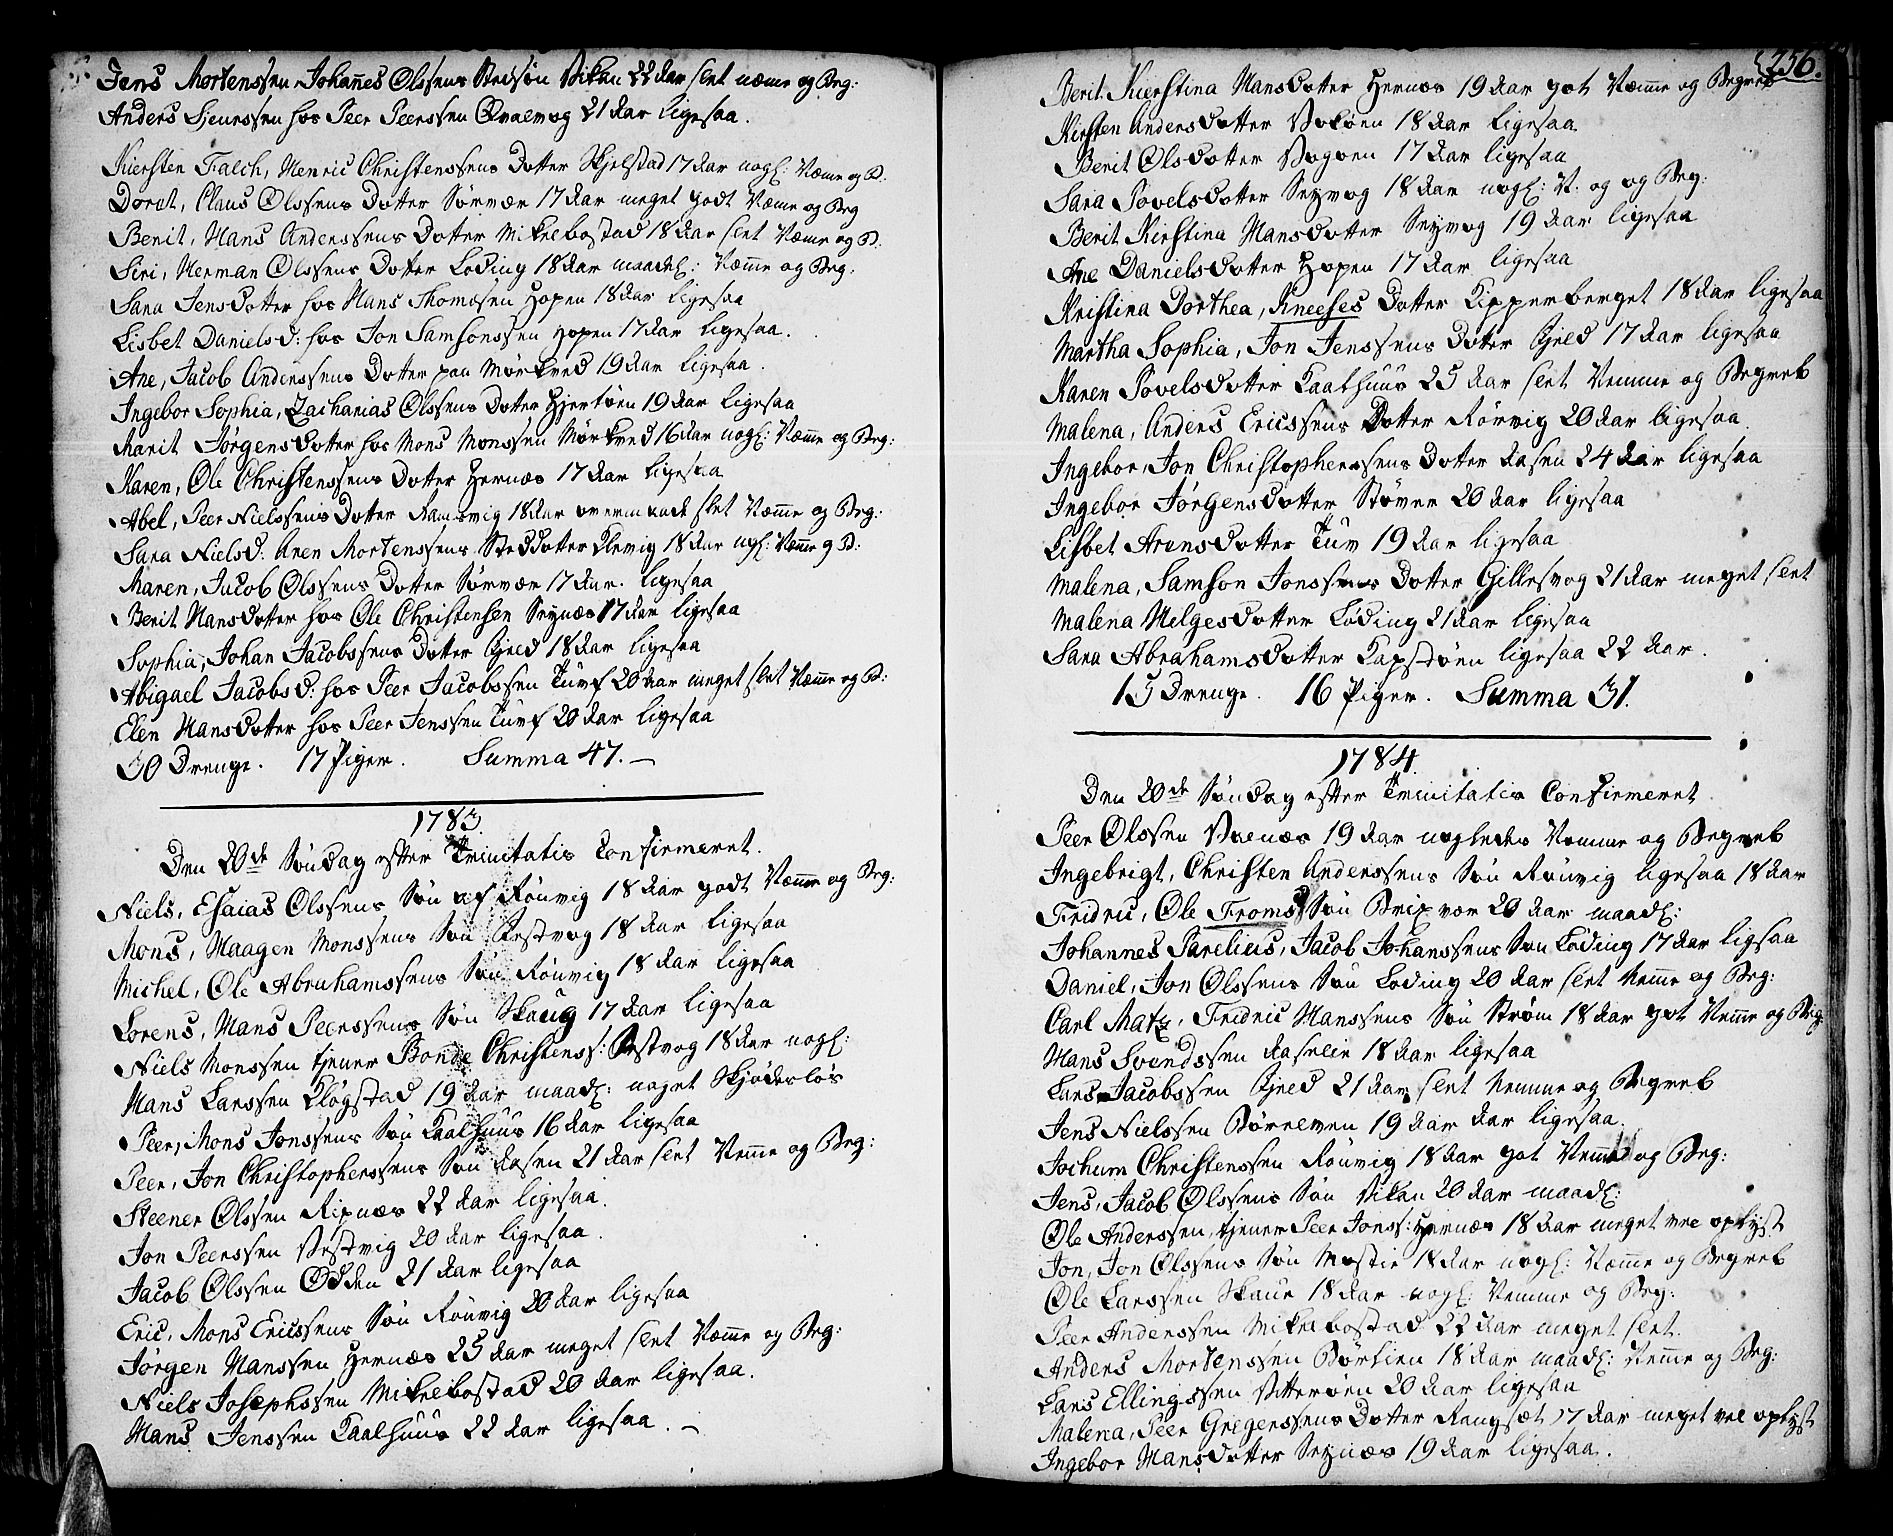 Jens Mortenssen Johañes Olssens Stedsøn Vikan 22 Aar slet næme og Beg:
Anders Sjeurssen hos Peer Peerssen Qvalvog 21 Aar ligesaa.
Kiersten Falch, Henric Christenssens Dotter Skjelstad 17 Aar nogl: Næme og B:
Dorat, Claus Olssens Dotter Sørvær 17 Aar meget godt Næme og Beg
Berit, Hans Anderssens Dotter Miklebostad 18 Aar slet Næme og B:
Siri, Herman Olssens Dotter Løding 18 Aar maadel: Næme og Beg:
Sara Jensdotter hos Hans Thomesen Hopen 18 Aar ligesaa
Lisbet Daniels d: hos Jon Samsonssen Hopen 17 Aar ligesaa.
Ane, Jacob Anderssens Dotter paa Mørkved 19 Aar ligesaa.
Ingebor Sophia, Zacharias Olssens Dotter Hjertøen 19 Aar ligesaa
Marit Jørgensdotter hos Mons Monssen Mørkved 16 Aar nogl: Næme og Beg:
Karen, Ole Christenssens Dotter Hernæs 17 Aar ligesaa
Abel, Peer Nielssens Dotter Ramsvig 18 Aar overmaade slet Næme og Beg:
Sara Nielsd: Aren Mortenssens Steddotter Alvig 18 Aar nogl: Næme og B:
Maren, Jacob Olssens Dotter Sørvær 17 Aar. ligesaa
Berit Hansdotter hos Ole Christensen Seynæs 17 Aar ligesaa
Sophia, Johan Jacobssens Dotter Gjeld 18 Aar ligesaa
Abigael Jacobsd: hos Peer Jacobssen Tuvf 20 Aar meget slet Næme og B:
Elen Hansdotter hos Peer Jenssen Tuvf 20 Aar ligesaa
30 Drenge. 17 Piger. Summa 47.
1783.
Den 20de Søndag efter Trinitatis Confirmeret.
Niels, Esaias Olssens Søn af Rønvig 18 Aar godt Næme og Beg:
Mons, Haagen Monssens Søn Festvog 18 Aar ligesaa
Michel, Ole Abrahamssens Søn Rønvig 18 Aar ligesaa
Lorens, Hans Peerssens Søn Skaug 17 Aar ligesaa
Niels Monssen tjener Bonde Christens: Festvog 18 Aar nogl:
Hans Larssen Kløgstad 19 Aar maadl: noget Skjødesløs
Peer, Mons Jonssens Søn Kaalhuus 16 Aar ligesaa
Peer, Jon Christophersens Søn Aasen 21 Aar slet Næme og Beg:
Steener Olssen Ripnæs 22 Aar ligesaa.
Jon Peerssen Vestvig 20 Aar ligesaa.
Jacob Olssen Odden 21 Aar ligesaa
Eric, Mons Ericssens Søn Rønvig 20 Aar ligesaa
Jørgen Hanssen Hernæs 25 Aar meget slet Næme og Beg:
Niels Josephssen Miklebostad 20 Aar ligesaa.
Hans Jenssen Kaalhuus 22 Aar ligesaa.
256.
Berit Kierstina Hansdotter Hernæs 19 Aar got Næme og Begreb
Kirsten Andersdotter Valøen 18 Aar ligesaa
Berit Olsdotter Vogøen 17 Aar ligesaa
Sara Povelsdotter Seyvog 18 Aar nogl: N: og og Beg:
Berit Kirstina Hansdotter Seyvog 19 Aar ligesaa
Ane Danielsdotter Hopen 17 Aar ligesaa
Kristina Dorthea, Kneeses Dotter Kipperberget 18 Aar ligesaa
Martha Sophia, Jon Jenssens Dotter Gjeld 17 Aar ligesaa
Karen Povelsdotter Kaalhuus 25 Aar slet Nemme og Begreb
Malena, Anders Ericssens Dotter Rørvig 20 Aar ligesaa
Ingebor, Jon Christopherssens Dotter Aasen 24 Aar ligesaa
Ingebor Jørgensdotter Støver 20 Aar ligesaa
Lisbet Arensdotter Tuv 19 Aar ligesaa
Malena, Samson Jonssens Dotter Gillesvog 21 Aar meget slet
Malena Helgesdotter Løding 21 Aar ligesaa
Sara Abrahamsdotter Kapstøen ligesaa 22 Aar.
15 Drenge. 16 Piger. Summa 31.
1784.
Den 20de Søndag efter Trinitatis Confirmeret
Peer Olssen Valnæs 19 Aar nogledes Nemme og Begreb
Ingebrigt, Christen Anderssens Søn Rønvig ligesaa 18 Aar
Fridric, Ole Froms Søn Brixvær 20 Aar maadl:
Johannes Parelius, Jacob Johanssens Søn Løding 17 Aar ligsaa
Daniel, Jon Olssens Søn Løding 20 Aar slet Neme og Beg:
Carl Matz, Fridric Hanssens Søn Strøm 18 Aar got Neme og Beg:
Hans Svendssen Aaselie 18 Aar ligesaa
Lars Jacobssen Gjeld 21 Aar slet Nemme og Begreb
Jens Nielssen Børnelven 19 Aar Aar ligesaa.
Jochum Christenssen Rønvig 18 Aar got Nemme og Beg:
Jens, Jacob Olssens Søn Vikan 20 Aar maadl:
Ole Anderssen, tjener Peer Jonss: Hernæs 18 Aar meget vel oplyst
Jon, Jon Olssens Søn Møstie 18 Aar nogl: Næme og Begreb
Ole Larssen Skaue 18 Aar nogl: Nemme og Beg:
Peer Anderssen Miklebostad 22 Aar meget slet.
Anders Mortenssen Børtien 18 Aar maadl: Neme og Beg:
Lars Ellingssen Vtterøen 20 Aar ligesaa
Malena, Peer Gregerssens Dotter Rangsæt 17 Aar meget vel oplyst
Ingebor Hansdotter Seynæs 19 Aar ligesaa.